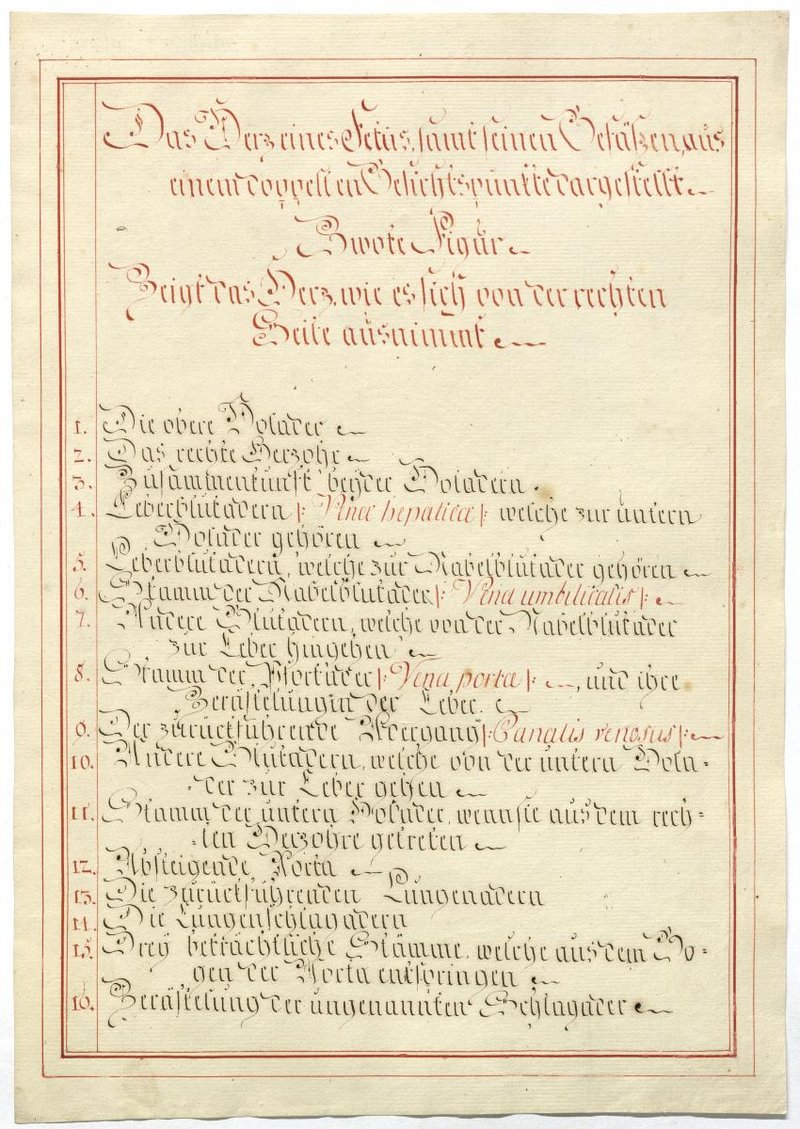 Das Herz eines Fetus, samt seinen Gefäßen, aus
einem doppelten Gesichtspunkte dargestellt
Zwote Figur
Zeigt das Herz, wie es sich von der rechten
Seite ausnimmt
1. Die obere Holader
2. Das rechte Herzohr
3. Zusammenkunft beyder Holadern.
4. Leberblutadern |: Vinæ hepaticæ :| welche zur untern
Holader gehören
5. Leberblutadern, welche zur Nabelblutader gehören
6. Stamm der Nabelblutader |: Vena umbilicalis :|
7. Andere Blutadern, welche von der Nabelblutader
zur Leber hingehen
8. Stamm der Pfortader |: Vena porta :|, und ihre
Zerästelung in der Leber.
9. Der zurückführende Adergang |: Canalis venosus :|
10. Andere Blutadern, welche von der untern Hola-
der zur Leber gehen
11. Stamm der untern Holader, wenn sie aus dem rech-
ten Herzohre getreten
12. Absteigende Aorta
13. Die zurückführenden Lungenadern
14. Die Lungenschlagadern
15. Drey beträchtliche Stämme, welche aus dem Bo-
gen der Aorta entspringen
16. Zerästelung der ungenannten Schlagader